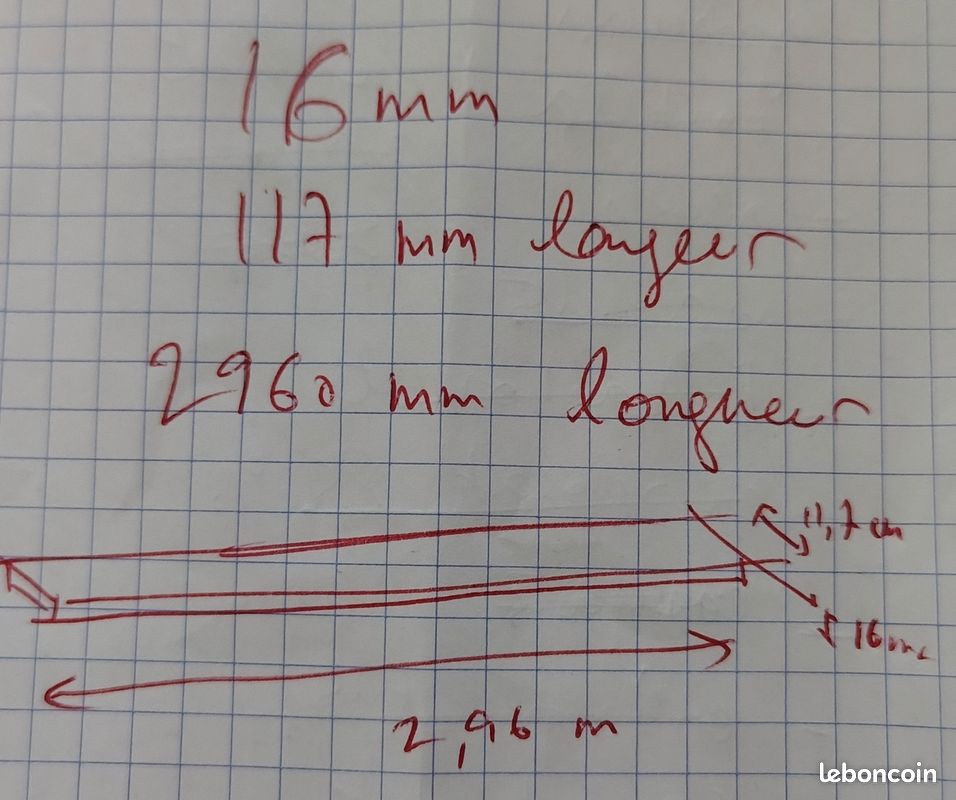 16 mm
117 mm largeur
2960 mm longueur
11,7 cm
16 mm
2,96 m
leboncoin